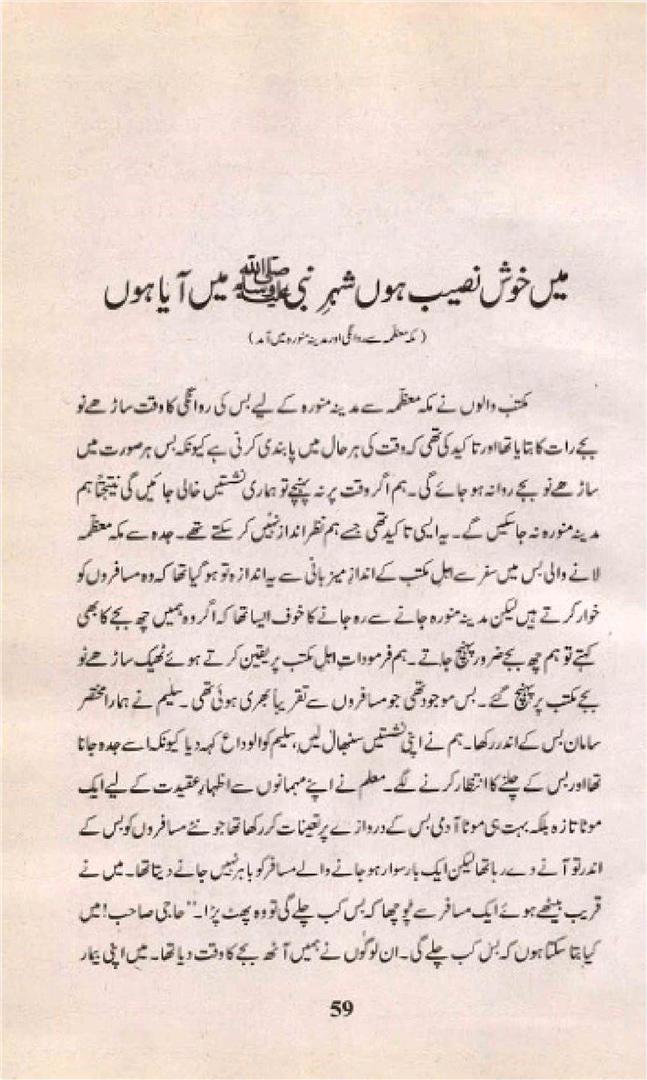 میں خوش نصیب ہوں شہرِ نبی ﷺ میں آیا ہوں
(مکہ معظمہ سے روانگی اور مدینہ منورہ میں آمد)
مکتب والوں نے مکہ معظّمہ سے مدینہ منورہ کے لیے بس کی روانگی کا وقت ساڑھے نو
بجے رات کا بتایا تھا اور تاکید کی تھی کہ وقت کی ہر حال میں پابندی کرنی ہے کیونکہ بس ہر صورت میں
ساڑھے نو بجے روانہ ہو جائے گی۔ ہم اگر وقت پر نہ پہنچے تو ہماری نشستیں خالی جائیں گی نتیجتاً ہم
مدینہ منورہ نہ جا سکیں گے۔ یہ ایسی تاکید تھی جسے ہم نظر انداز نہیں کر سکتے تھے۔ جدہ سے مکہ معظّمہ
لانے والی بس میں سفر سے اہلِ مکتب کے اندازِ میزبانی سے یہ اندازہ تو ہو گیا تھا کہ وہ مسافروں کو
خوار کرتے ہیں لیکن مدینہ منورہ جانے سے رہ جانے کا خوف ایسا تھا کہ اگر وہ ہمیں چھ بجے کا بھی
کہتے تو ہم چھ بجے ضرور پہنچ جاتے۔ ہم فرموداتِ اہل مکتب پر یقین کرتے ہوئے ٹھیک ساڑھے نو
بجے مکتب پر پہنچ گئے۔ بس موجود تھی جو مسافروں سے تقریباً بھری ہوئی تھی۔ سلیم نے ہمارا مختصر
سامان بس کے اندر رکھا۔ ہم نے اپنی نشستیں سنبھال لیں، سلیم کو الوداع کہہ دیا کیونکہ اسے جدہ جانا
تھا اور بس کے چلنے کا انتظار کرنے لگے۔ معلم نے اپنے مہمانوں سے اظہارِ عقیدت کے لیے ایک
موٹا تازہ بلکہ بہت ہی موٹا آدمی بس کے دروازے پر تعینات کر رکھا تھا جو نئے مسافروں کو بس کے
اندر تو آنے دے رہا تھا لیکن ایک بار سوار ہو جانے والے مسافر کو باہر نہیں جانے دیتا تھا۔ میں نے
قریب بیٹھے ہوئے ایک مسافر سے پوچھا کہ بس کب چلے گی تو وہ پھٹ پڑا۔ "حاجی صاحب! میں
کیا بتا سکتا ہوں کہ بس کب چلے گی۔ ان لوگوں نے ہمیں آٹھ بجے کا وقت دیا تھا۔ میں اپنی بیمار
59